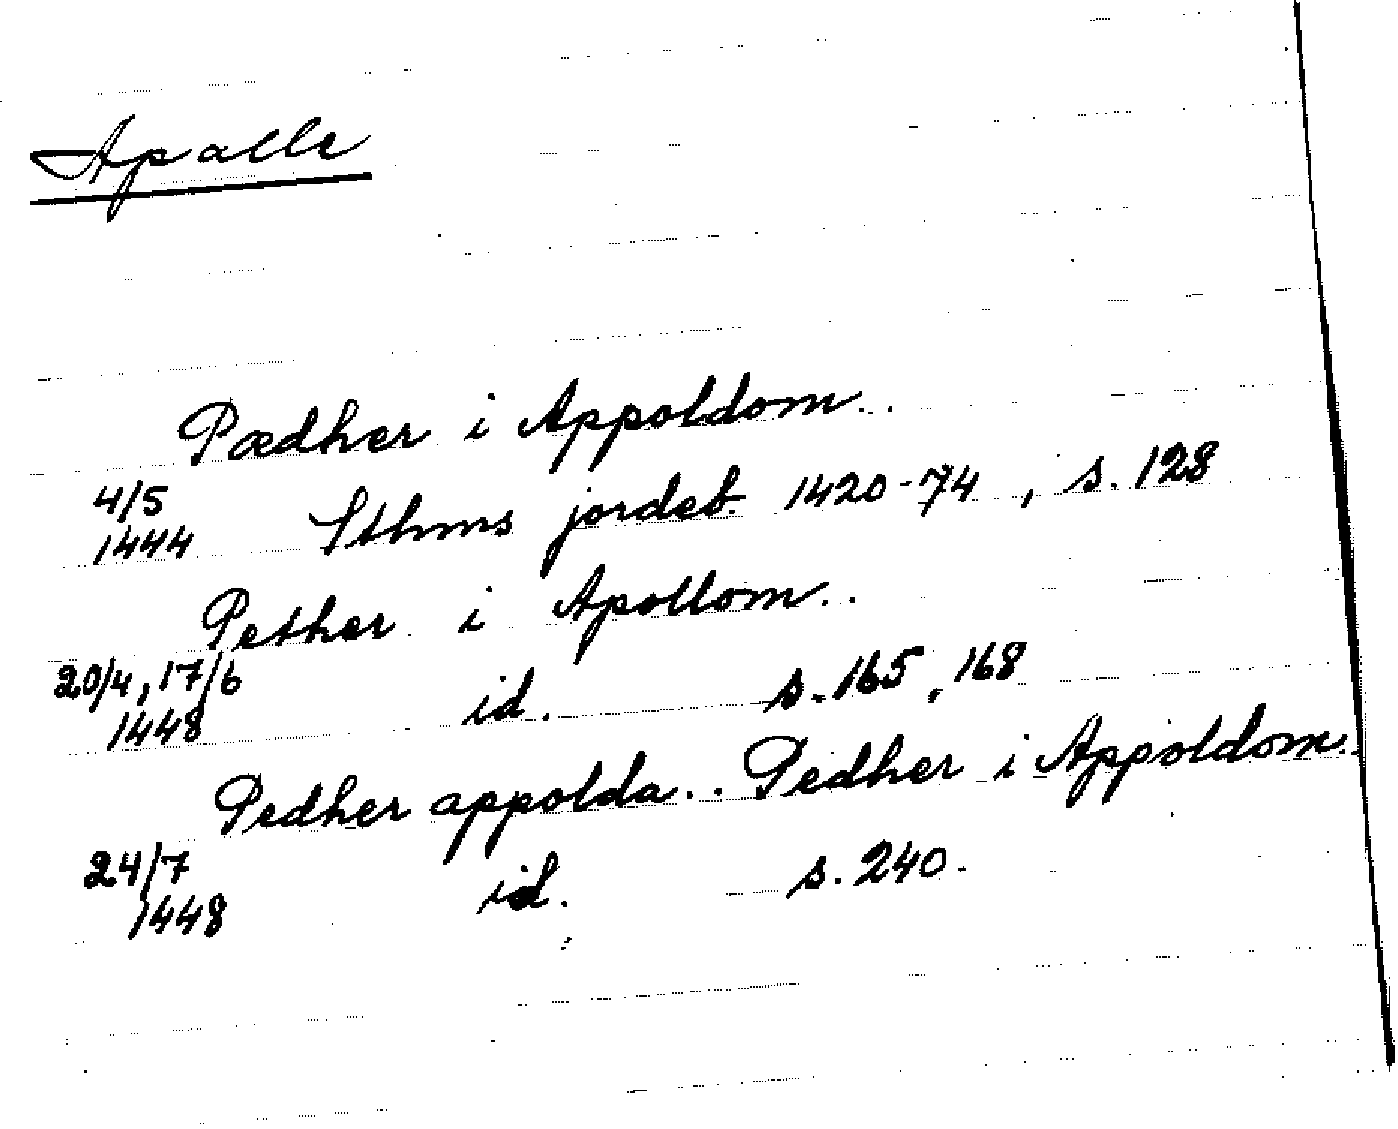 Apalle
Pædher i Appoldom..
4/5
1444 Sthms jordeb. 1420-74, s. 128
Pether i Apollom..
20/4, 17/6
1448 id. s. 165, 168
Pedher appolda.. Pedher i Appoldom..
24/7
1448 id. s. 240.